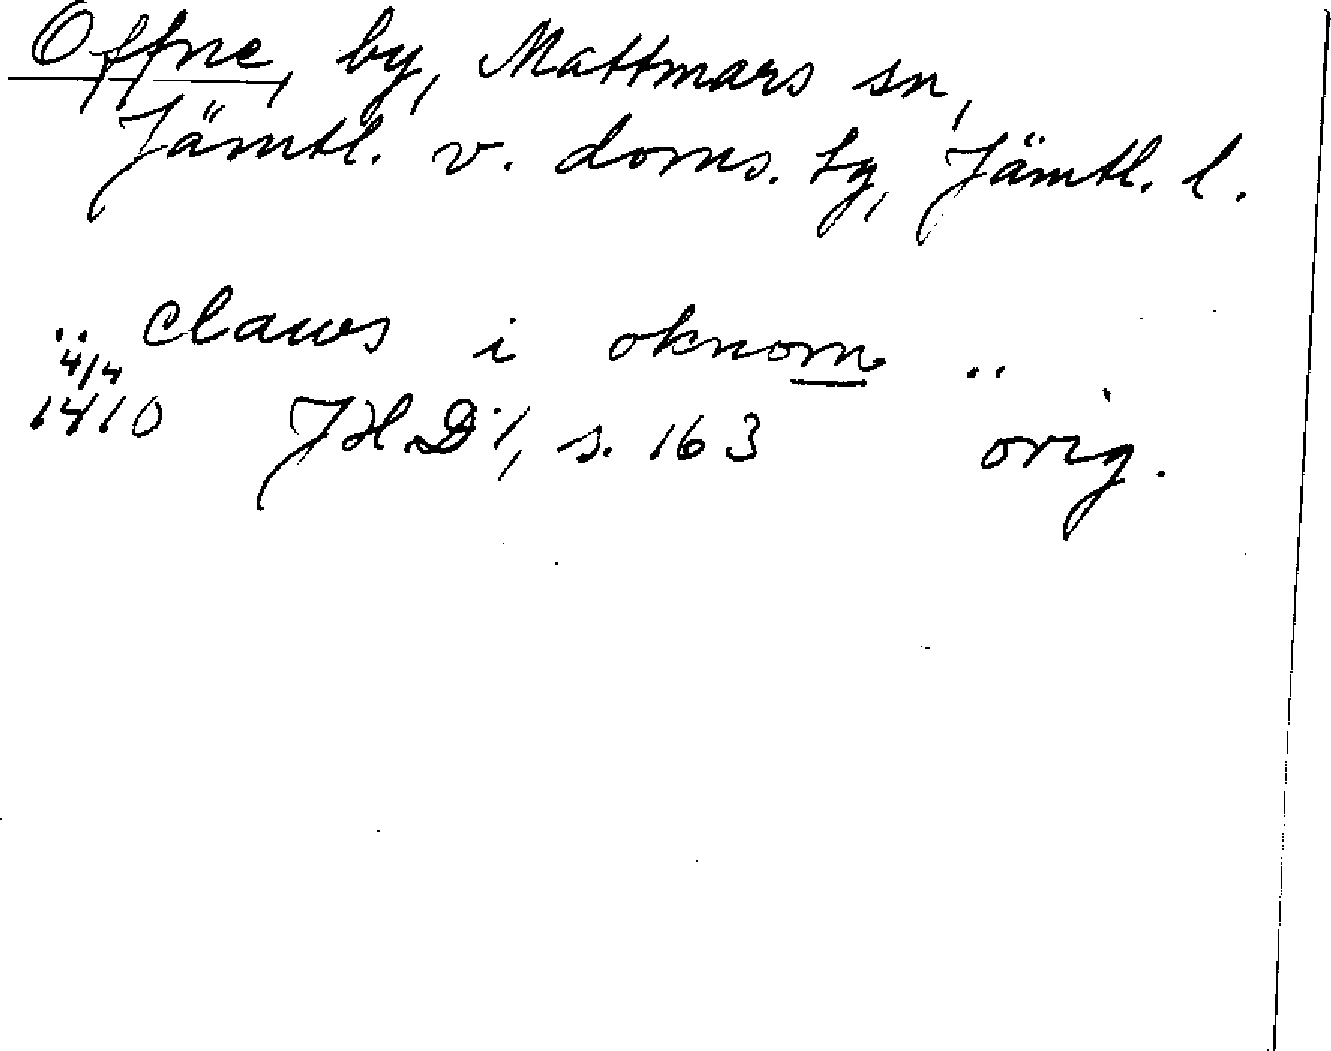 Offne, by, Mattmars sn,
Jämtl. v. doms. tg, Jämtl. l.
.. claues i oknom ..
4/4
1410 JHD 1, s. 163 orig.